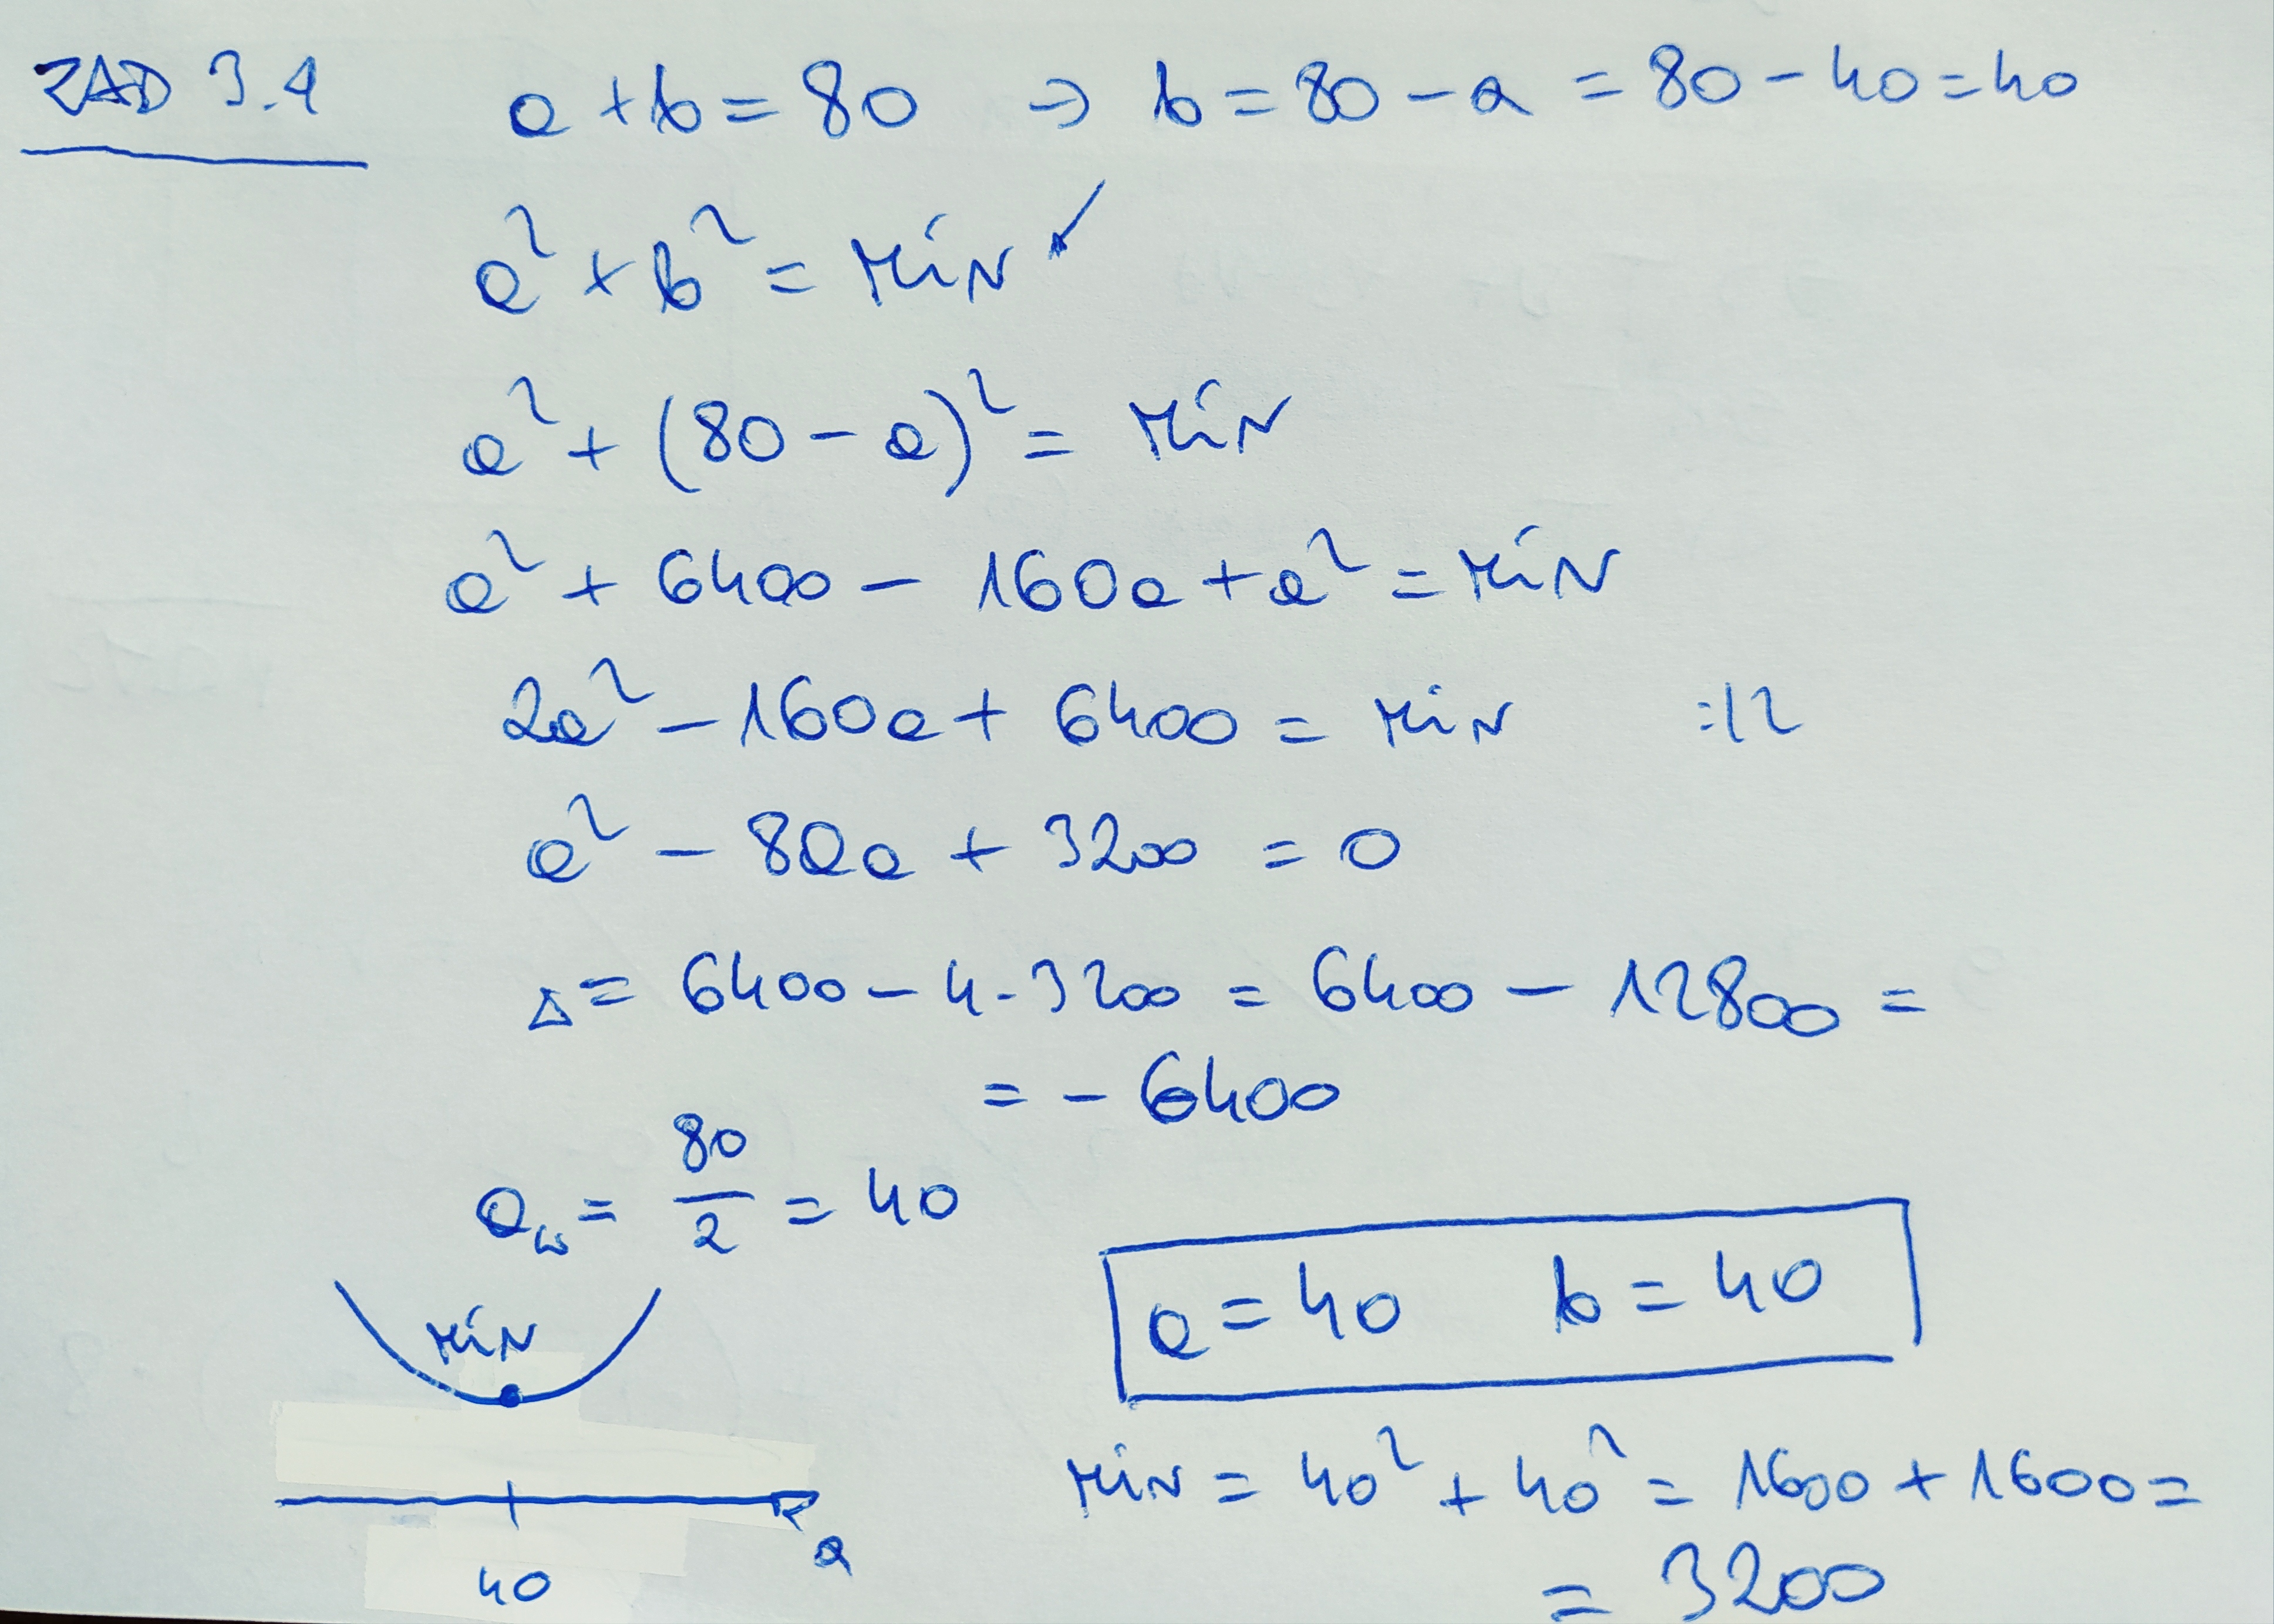 ZAD 3.4 a + b = 80 ⇒ b = 80 - a = 80 - 40 = 40
a² + b² = MIN
a² + (80 - a)² = MIN
a² + 6400 - 160a + a² = MIN
2a² - 160a + 6400 = MIN :|2
a² - 80a + 3200 = 0
Δ = 6400 - 4·3200 = 6400 - 12800 =
= - 6400
a_w = 80/2 = 40
MIN
40
a
a = 40 b = 40
MIN = 40² + 40² = 1600 + 1600 =
= 3200